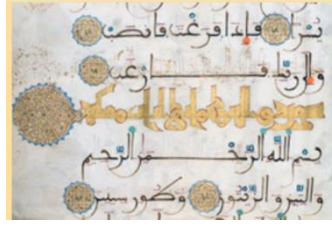 يسرا فإذا فرغت فانصب
وإلى ربك فارغب
بسم الله الرحمن الرحيم
والتين والزيتون وطور سينين